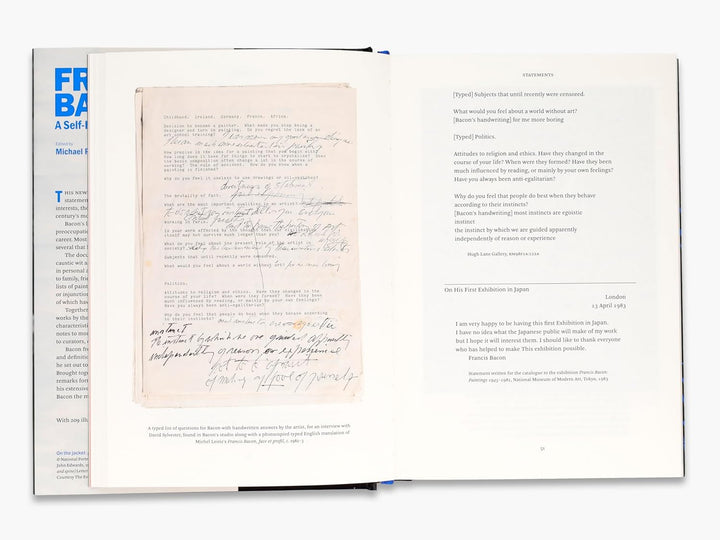 FR
BA
A Self-
Edited by
Michael P
THIS NEW
statement
interests, the
century's mo
Bacon's
preoccupatio
career. Most
The docum
caustic wit a
in personal a
to family, frie
lists of paint
or injunction
of which hav
Together
works by the
characteristi
notes to mo
to curators,
Bacon fre
and definitio
he set out to
Brought toge
remarks form
his extensive
the first time
With 209 illu
On the jacket
© National Port
John Edwards,
and spine) Lette
Courtesy The E
Childhood. Ireland. Germany. France. Africa.
Decision to become a painter. What made you stop being a
designer and turn to painting. Do you regret the lack of an
art school training?
How precise is the idea for a painting that you begin with?
How long does it take for things to start to crystallise? Does
the basic composition often change a lot in the course of
working? The role of accident. How do you know when a
painting is finished?
Why do you feel it useless to use drawings or oil-sketches?
The brutality of fact.
What are the most important qualities in an artist?
Working in series
Is your work affected by the thought that our civilisation
itself may not survive much longer than you?
What do you feel about the present role of the artist in
society?
Subjects that until recently were censored.
What would you feel about a world without art? for me more boring
Politics.
Attitudes to religion and ethics. Have they changed in the
course of your life? When were they formed? Have they been
much influenced by reading, or mainly by your own feelings?
Have you always been anti-egalitarian?
Why do you feel that people do best when they behave according
to their instincts? most instincts are egoistic
instinct
the instinct by which we are guided apparently
independently of reason or experience
A typed list of questions for Bacon with handwritten answers by the artist, for an interview with
David Sylvester, found in Bacon's studio along with a photocopied typed English translation of
Michel Leiris's Francis Bacon, face et profil, c. 1982–3
STATEMENTS
[Typed] Subjects that until recently were censored.
What would you feel about a world without art?
[Bacon's handwriting] for me more boring
[Typed] Politics.
Attitudes to religion and ethics. Have they changed in the
course of your life? When were they formed? Have they been
much influenced by reading, or mainly by your own feelings?
Have you always been anti-egalitarian?
Why do you feel that people do best when they behave
according to their instincts?
[Bacon's handwriting] most instincts are egoistic
instinct
the instinct by which we are guided apparently
independently of reason or experience
Hugh Lane Gallery,
On His First Exhibition in Japan
London
13 April 1983
I am very happy to be having this first Exhibition in Japan.
I have no idea what the Japanese public will make of my work
but I hope it will interest them. I should like to thank everyone
who has helped to make This exhibition possible.
Francis Bacon
Statement written for the catalogue to the exhibition Francis Bacon:
Paintings 1945–1982, National Museum of Modern Art, Tokyo, 1983